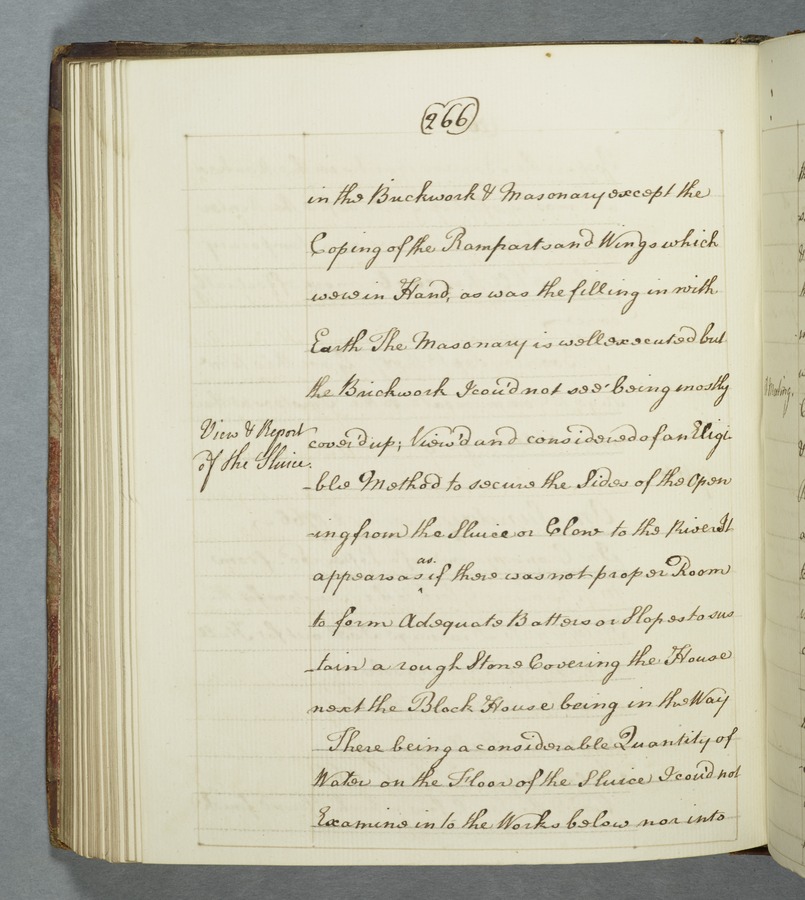 266
in the Brickwork & Masonary except the
Coping of the Ramparts and Wings which
were in Hand, as was the filling in with
Earth The Masonary is well executed but
the Brickwork I cou'd not see being mostly
View & Report
of the Sluice.
cover'd up; View'd and considered of an Eligi-
-ble Method to secure the Sides of the Open
-ing from the Sluice or Clow to the River It
as
appears as if there was not proper Room
to form Adequate Batters or Slopes to sus
-tain a rough Stone Covering the House
next the Block House being in the Way
There being a considerable Quantity of
Water on the Floor of the Sluice I cou'd not
Examine into the Works below nor into
Meeting.